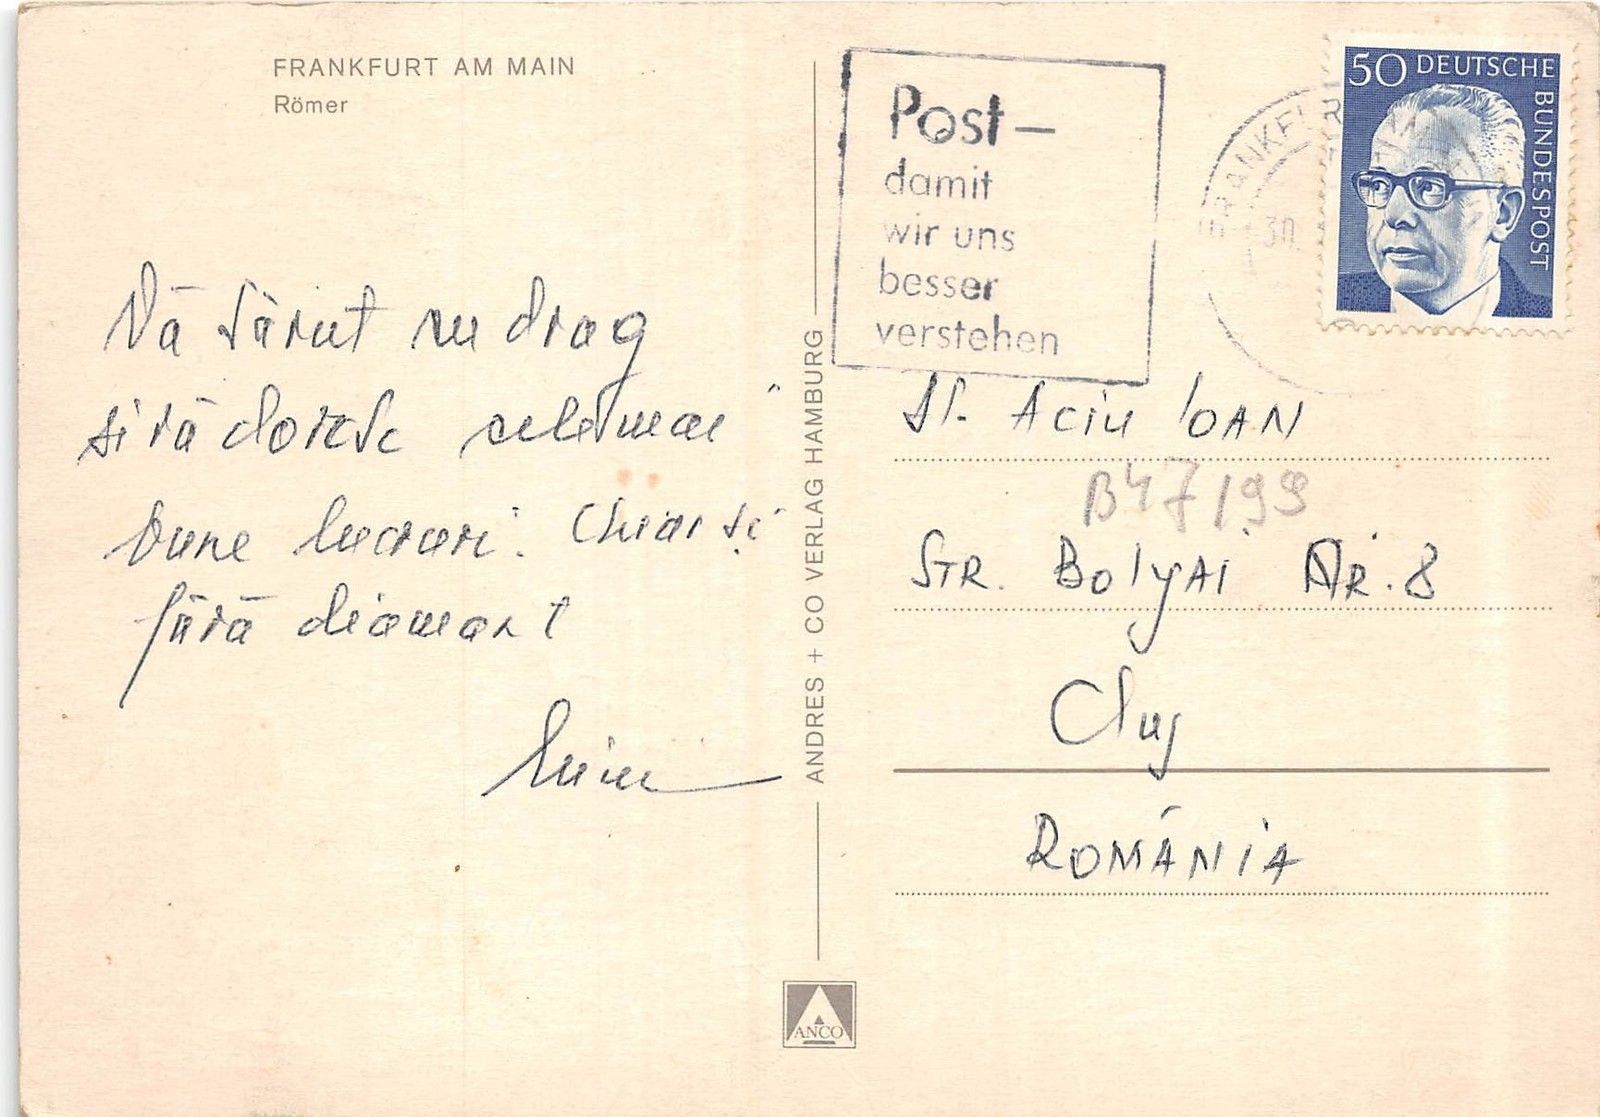 FRANKFURT AM MAIN
Römer
Vă sărut cu drag
si vă doresc cele mai
bune lucruri. Chiar și
fără diamant
Post –
damit
wir uns
besser
verstehen
FRANKFUR
30.
50 DEUTSCHE
BUNDESPOST
ANDRES + CO VERLAG HAMBURG
ACIU IOAN
B47199
STR. BOlyAI NR. 8
Cluj
ROMÂNIA
ANCO